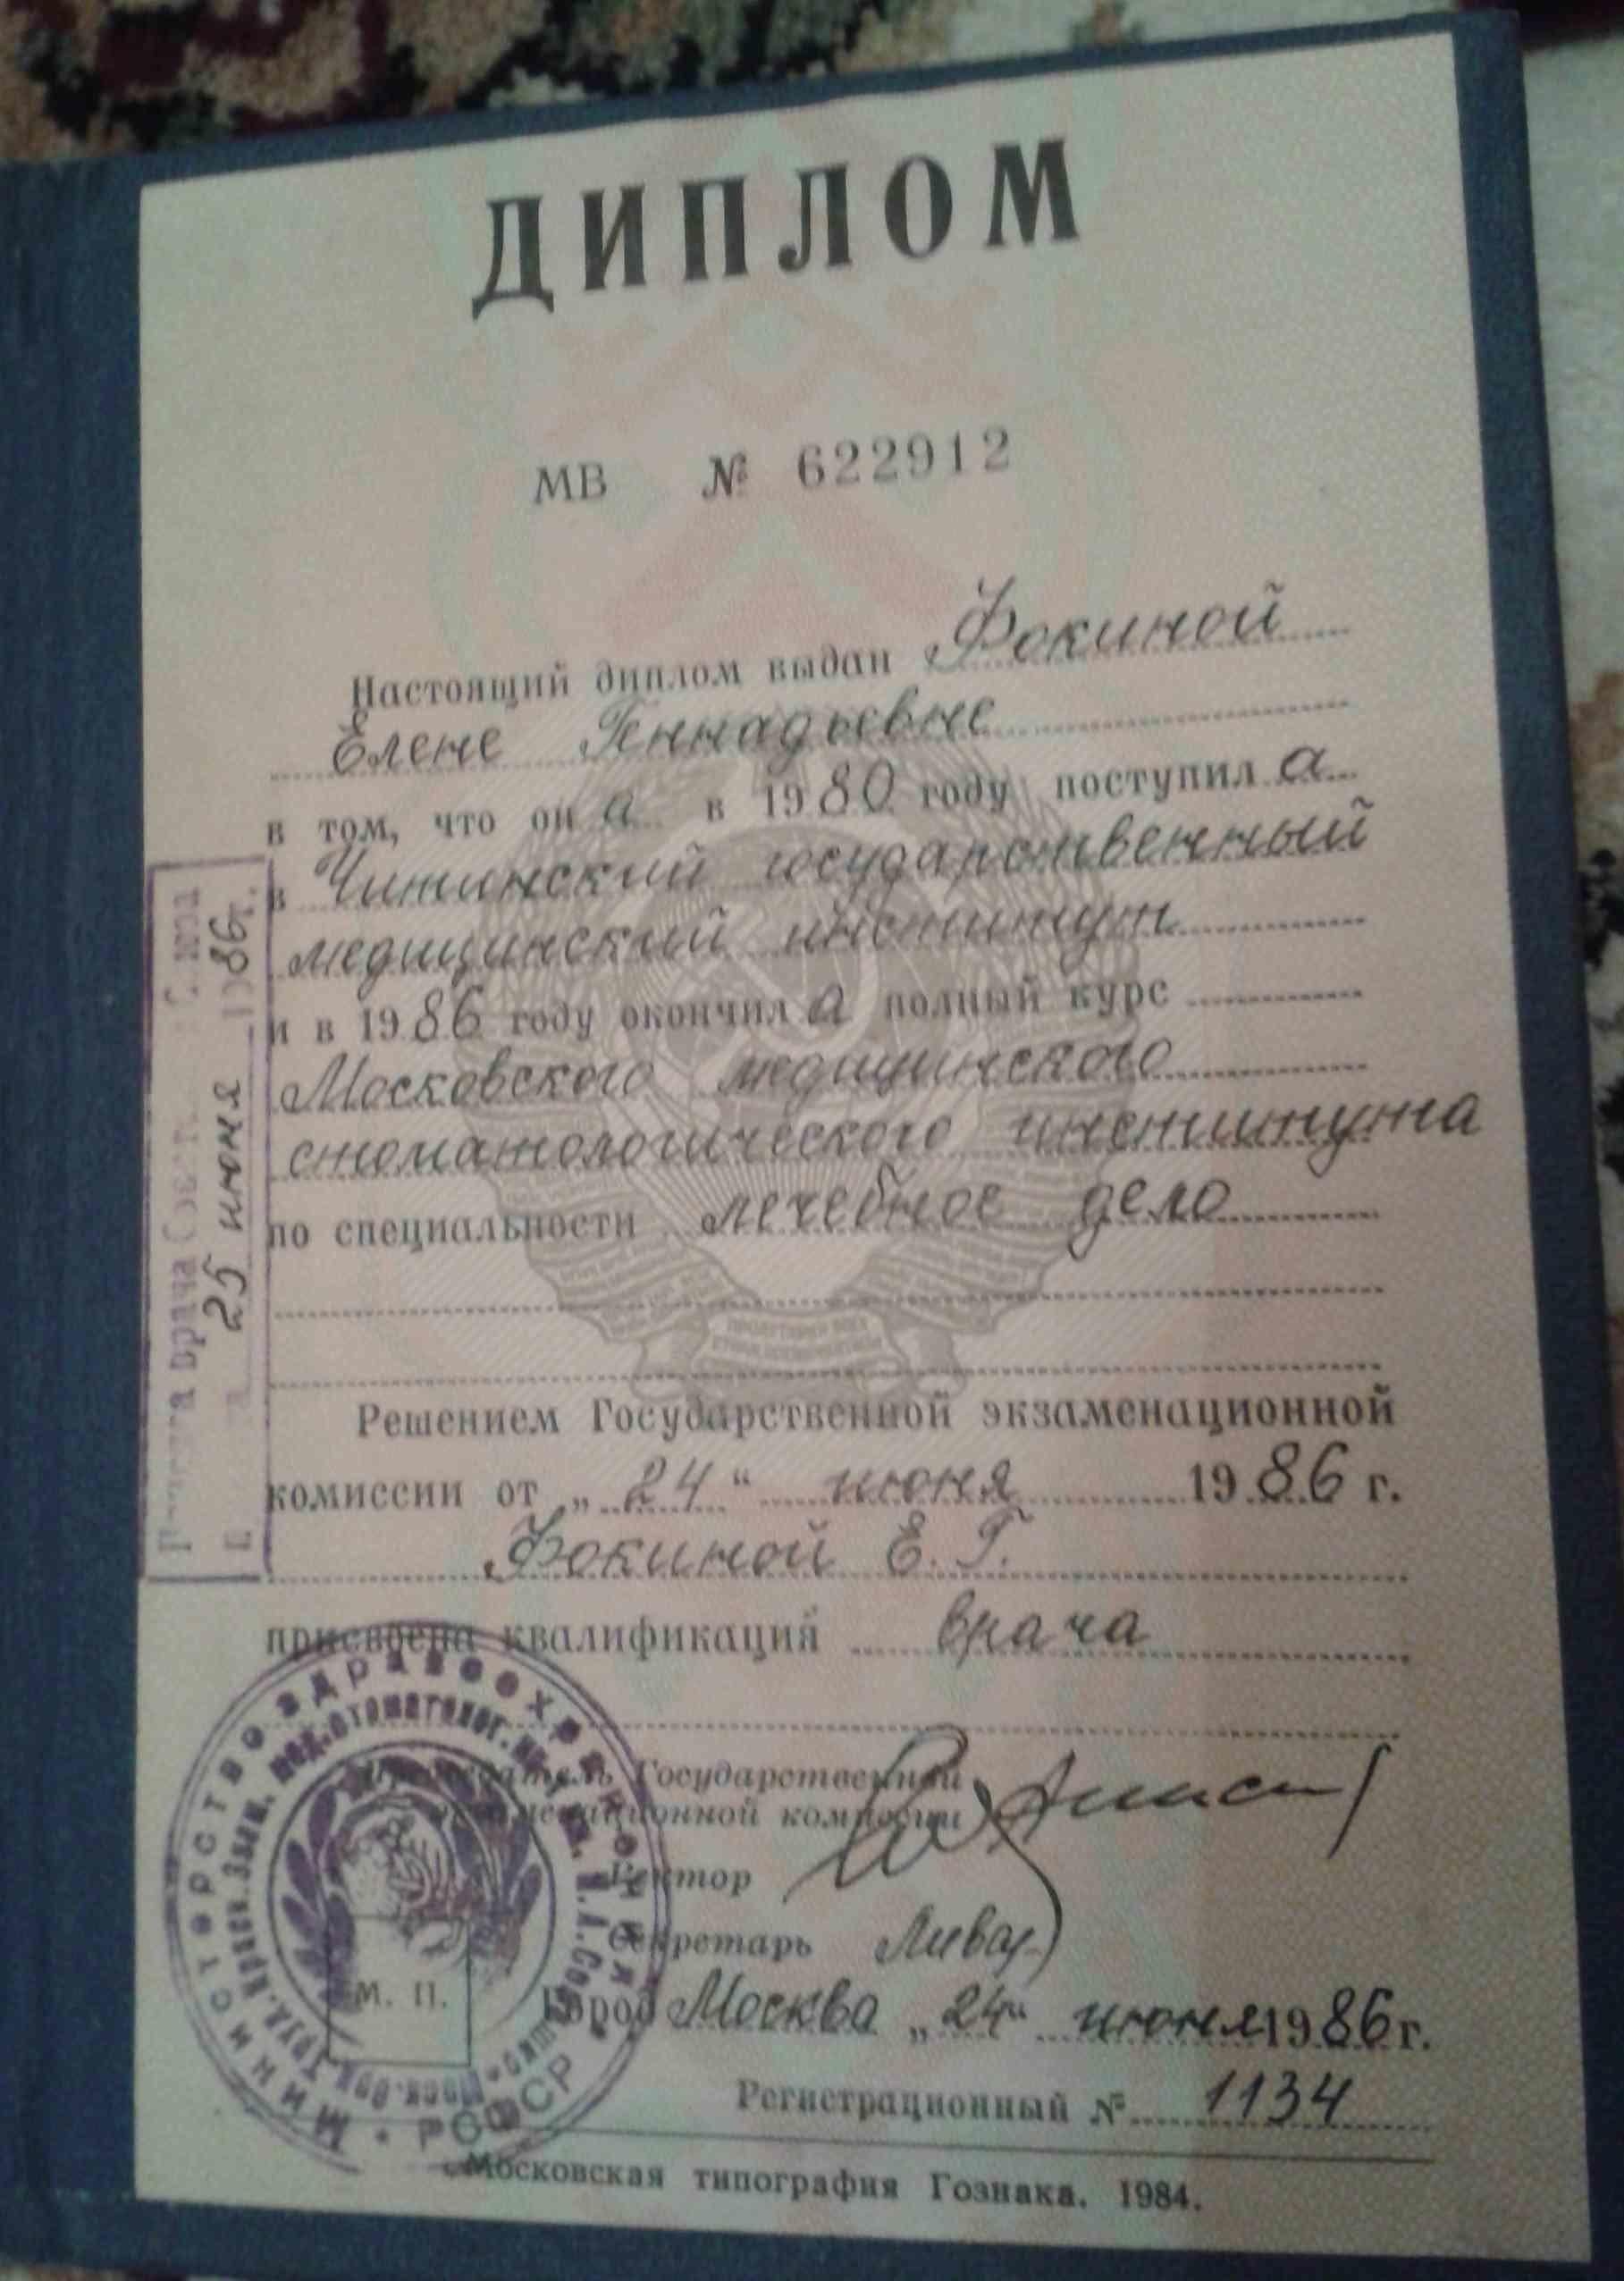 ДИПЛОМ
МВ № 622912
Настоящий диплом выдан Фокиной
Елене Геннадьевне
в том, что он а в 1980 году поступил а
в Читинский государственный
медицинский институт
и в 1986 году окончил а полный курс
Московского медицинского
стоматологического института
по специальности лечебное дело
Решением Государственной экзаменационной
комиссии от „24“ июня 1986 г.
Фокиной Е. Г.
присвоена квалификация врача
Председатель Государственной
экзаменационной комиссии
Ректор
Секретарь
Город Москва „24“ июня 1986 г.
Регистрационный № 1134
Московская типография Гознака. 1984.
М. П.
Министерство здравоохранения РСФСР
врача
25 июня 1986г.